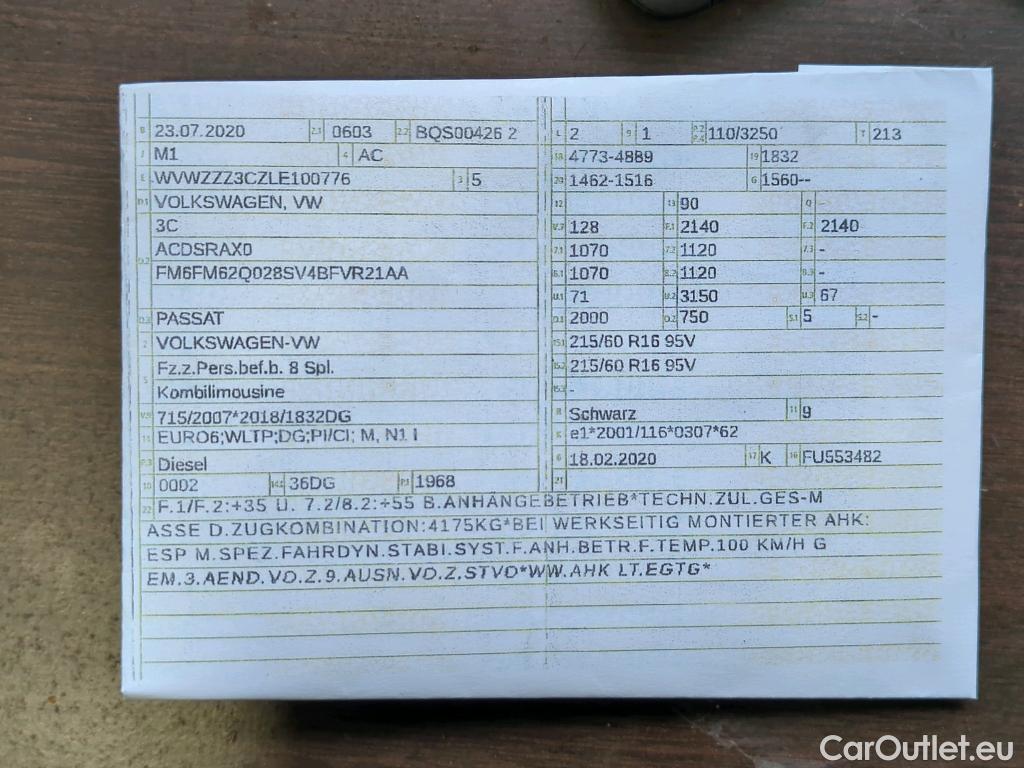 B 23.07.2020 2.1 0603 2.2 BQS00426 2
J M1 4 AC
E WVWZZZ3CZLE100776 3 5
D.1 VOLKSWAGEN, VW
3C
D.2 ACDSRAX0
FM6FM62Q028SV4BFVR21AA
D.3 PASSAT
2 VOLKSWAGEN-VW
5 Fz.z.Pers.bef.b. 8 Spl.
Kombilimousine
V.9 715/2007*2018/1832DG
14 EURO6;WLTP;DG;PI/CI; M, N1 I
P.3 Diesel
10 0002 14.1 36DG P.1 1968
L 2 9 1 P.2 P.4 110/3250 T 213
18 4773-4889 19 1832
20 1462-1516 G 1560--
12 13 90 Q -
V.7 128 F.1 2140 F.2 2140
7.1 1070 7.2 1120 7.3 -
8.1 1070 8.2 1120 8.3 -
U.1 71 U.2 3150 U.3 67
O.1 2000 O.2 750 S.1 5 S.2 -
15.1 215/60 R16 95V
15.2 215/60 R16 95V
15.3 -
R Schwarz 11 9
K e1*2001/116*0307*62
6 18.02.2020 17 K 16 FU553482
21
22 F.1/F.2:+35 U. 7.2/8.2:+55 B.ANHÄNGEBETRIEB*TECHN.ZUL.GES-M
ASSE D.ZUGKOMBINATION:4175KG*BEI WERKSEITIG MONTIERTER AHK:
ESP M.SPEZ.FAHRDYN.STABI.SYST.F.ANH.BETR.F.TEMP.100 KM/H G
EM.3.AEND.VO.Z.9.AUSN.VO.Z.STVO*WW.AHK LT.EGTG*
CarOutlet.eu